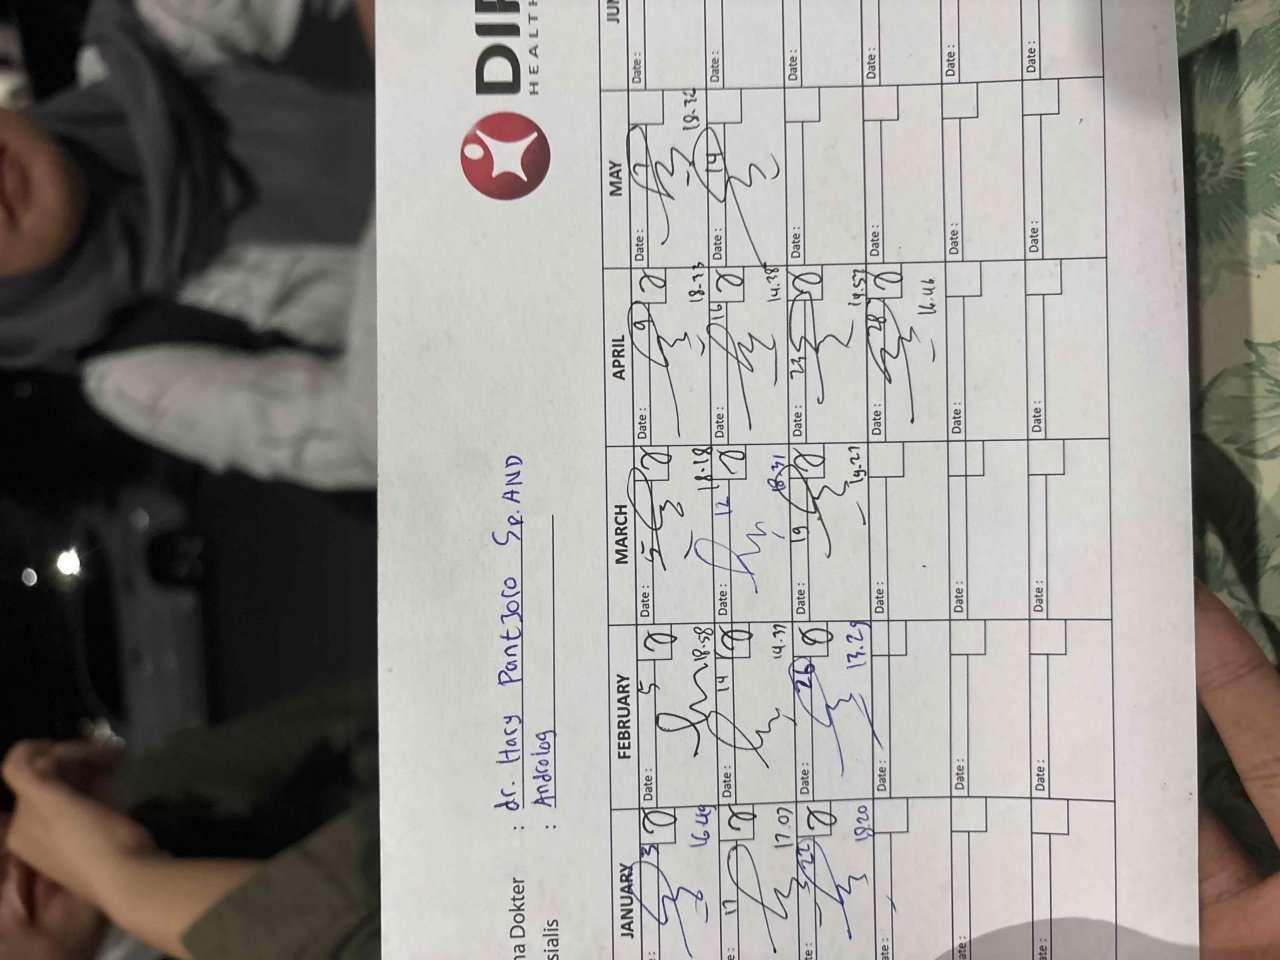 DI
HEALTH
na Dokter : dr. Hary Pantjoro Sp. AND
sialis : Androlog
JANUARY FEBRUARY MARCH APRIL MAY JUN
3 Date : 5 Date : 5 Date : 9 Date : 7 Date :
16.49 18.58 18.18 18.33 18.32
17 Date : 14 Date : 12 Date : 16 Date : 14 Date :
17.07 14.37 18.31 14.38
22 Date : 26 Date : 19 Date : 23 Date : Date :
18.20 13.29 19.27 19.57
Date : Date : Date : 28 Date : Date :
16.46
Date : Date : Date : Date : Date :
Date : Date : Date : Date : Date :